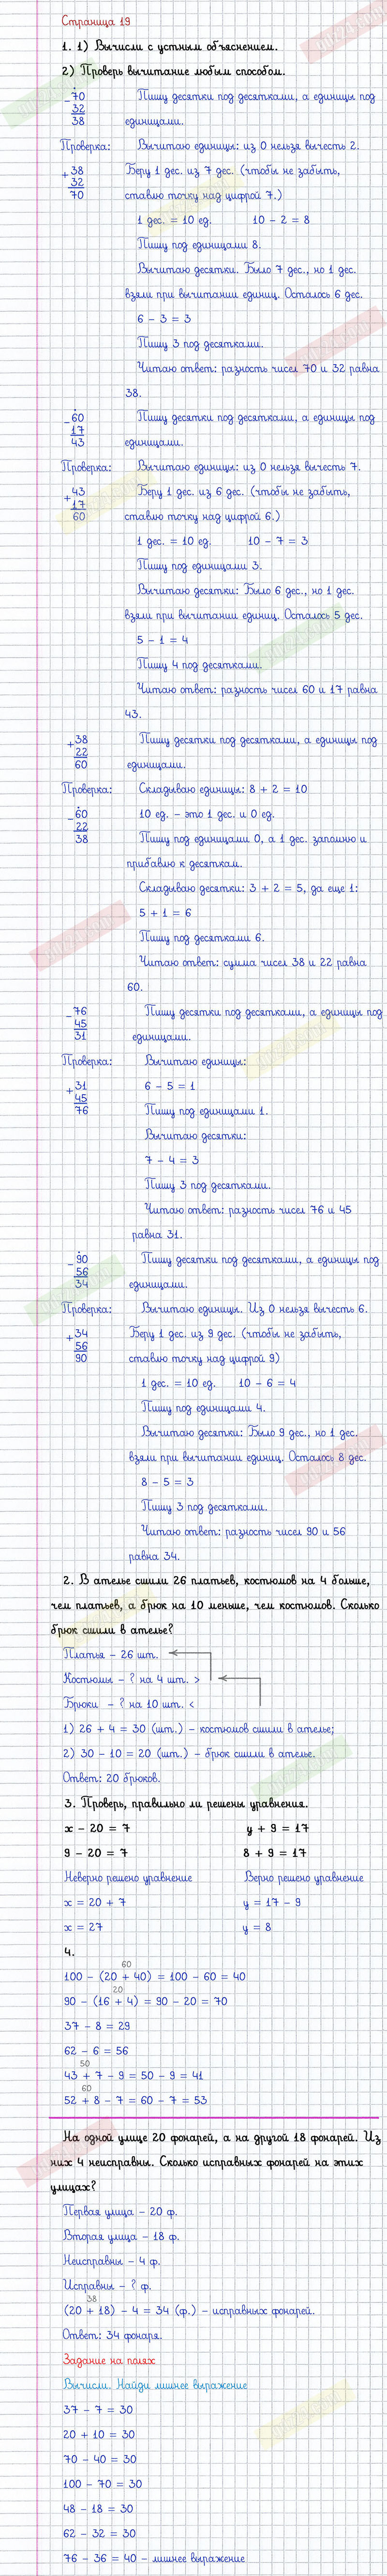 Страница 19
1. 1) Вычисли с устным объяснением.
2) Проверь вычитание любым способом.
- 70
32
38
Пишу десятки под десятками, а единицы под
единицами.
Проверка:
+ 38
32
70
Вычитаю единицы: из 0 нельзя вычесть 2.
Беру 1 дес. из 7 дес. (чтобы не забыть,
ставлю точку над цифрой 7.)
1 дес. = 10 ед. 10 - 2 = 8
Пишу под единицами 8.
Вычитаю десятки. Было 7 дес., но 1 дес.
взяли при вычитании единиц. Осталось 6 дес.
6 - 3 = 3
Пишу 3 под десятками.
Читаю ответ: разность чисел 70 и 32 равна
38.
- 60
17
43
Пишу десятки под десятками, а единицы под
единицами.
Проверка:
+ 43
17
60
Вычитаю единицы: из 0 нельзя вычесть 7.
Беру 1 дес. из 6 дес. (чтобы не забыть,
ставлю точку над цифрой 6.)
1 дес. = 10 ед. 10 - 7 = 3
Пишу под единицами 3.
Вычитаю десятки: Было 6 дес., но 1 дес.
взяли при вычитании единиц. Осталось 5 дес.
5 - 1 = 4
Пишу 4 под десятками.
Читаю ответ: разность чисел 60 и 17 равна
43.
+ 38
22
60
Пишу десятки под десятками, а единицы под
единицами.
Проверка:
- 60
22
38
Складываю единицы: 8 + 2 = 10
10 ед. - это 1 дес. и 0 ед.
Пишу под единицами 0, а 1 дес. запомню и
прибавлю к десяткам.
Складываю десятки: 3 + 2 = 5, да еще 1:
5 + 1 = 6
Пишу под десятками 6.
Читаю ответ: сумма чисел 38 и 22 равна
60.
- 76
45
31
Пишу десятки под десятками, а единицы под
единицами.
Проверка:
+ 31
45
76
Вычитаю единицы:
6 - 5 = 1
Пишу под единицами 1.
Вычитаю десятки:
7 - 4 = 3
Пишу 3 под десятками.
Читаю ответ: разность чисел 76 и 45
равна 31.
- 90
56
34
Пишу десятки под десятками, а единицы под
единицами.
Проверка:
+ 34
56
90
Вычитаю единицы. Из 0 нельзя вычесть 6.
Беру 1 дес. из 9 дес. (чтобы не забыть,
ставлю точку над цифрой 9)
1 дес. = 10 ед. 10 - 6 = 4
Пишу под единицами 4.
Вычитаю десятки: Было 9 дес., но 1 дес.
взяли при вычитании единиц. Осталось 8 дес.
8 - 5 = 3
Пишу 3 под десятками.
Читаю ответ: разность чисел 90 и 56
равна 34.
2. В ателье сшили 26 платьев, костюмов на 4 больше,
чем платьев, а брюк на 10 меньше, чем костюмов. Сколько
брюк сшили в ателье?
Платья - 26 шт.
Костюмы - ? на 4 шт. >
Брюки - ? на 10 шт. <
1) 26 + 4 = 30 (шт.) - костюмов сшили в ателье;
2) 30 - 10 = 20 (шт.) - брюк сшили в ателье.
Ответ: 20 брюков.
3. Проверь, правильно ли решены уравнения.
x - 20 = 7 y + 9 = 17
9 - 20 = 7 8 + 9 = 17
Неверно решено уравнение Верно решено уравнение
x = 20 + 7 y = 17 - 9
x = 27 y = 8
4.
60
100 - (20 + 40) = 100 - 60 = 40
20
90 - (16 + 4) = 90 - 20 = 70
37 - 8 = 29
62 - 6 = 56
50
43 + 7 - 9 = 50 - 9 = 41
60
52 + 8 - 7 = 60 - 7 = 53
На одной улице 20 фонарей, а на другой 18 фонарей. Из
них 4 неисправны. Сколько исправных фонарей на этих
улицах?
Первая улица - 20 ф.
Вторая улица - 18 ф.
Неисправны - 4 ф.
Исправны - ? ф.
38
(20 + 18) - 4 = 34 (ф.) - исправных фонарей.
Ответ: 34 фонаря.
Задание на полях
Вычисли. Найди лишнее выражение
37 - 7 = 30
20 + 10 = 30
70 - 40 = 30
100 - 70 = 30
48 - 18 = 30
62 - 32 = 30
76 - 36 = 40 - лишнее выражение